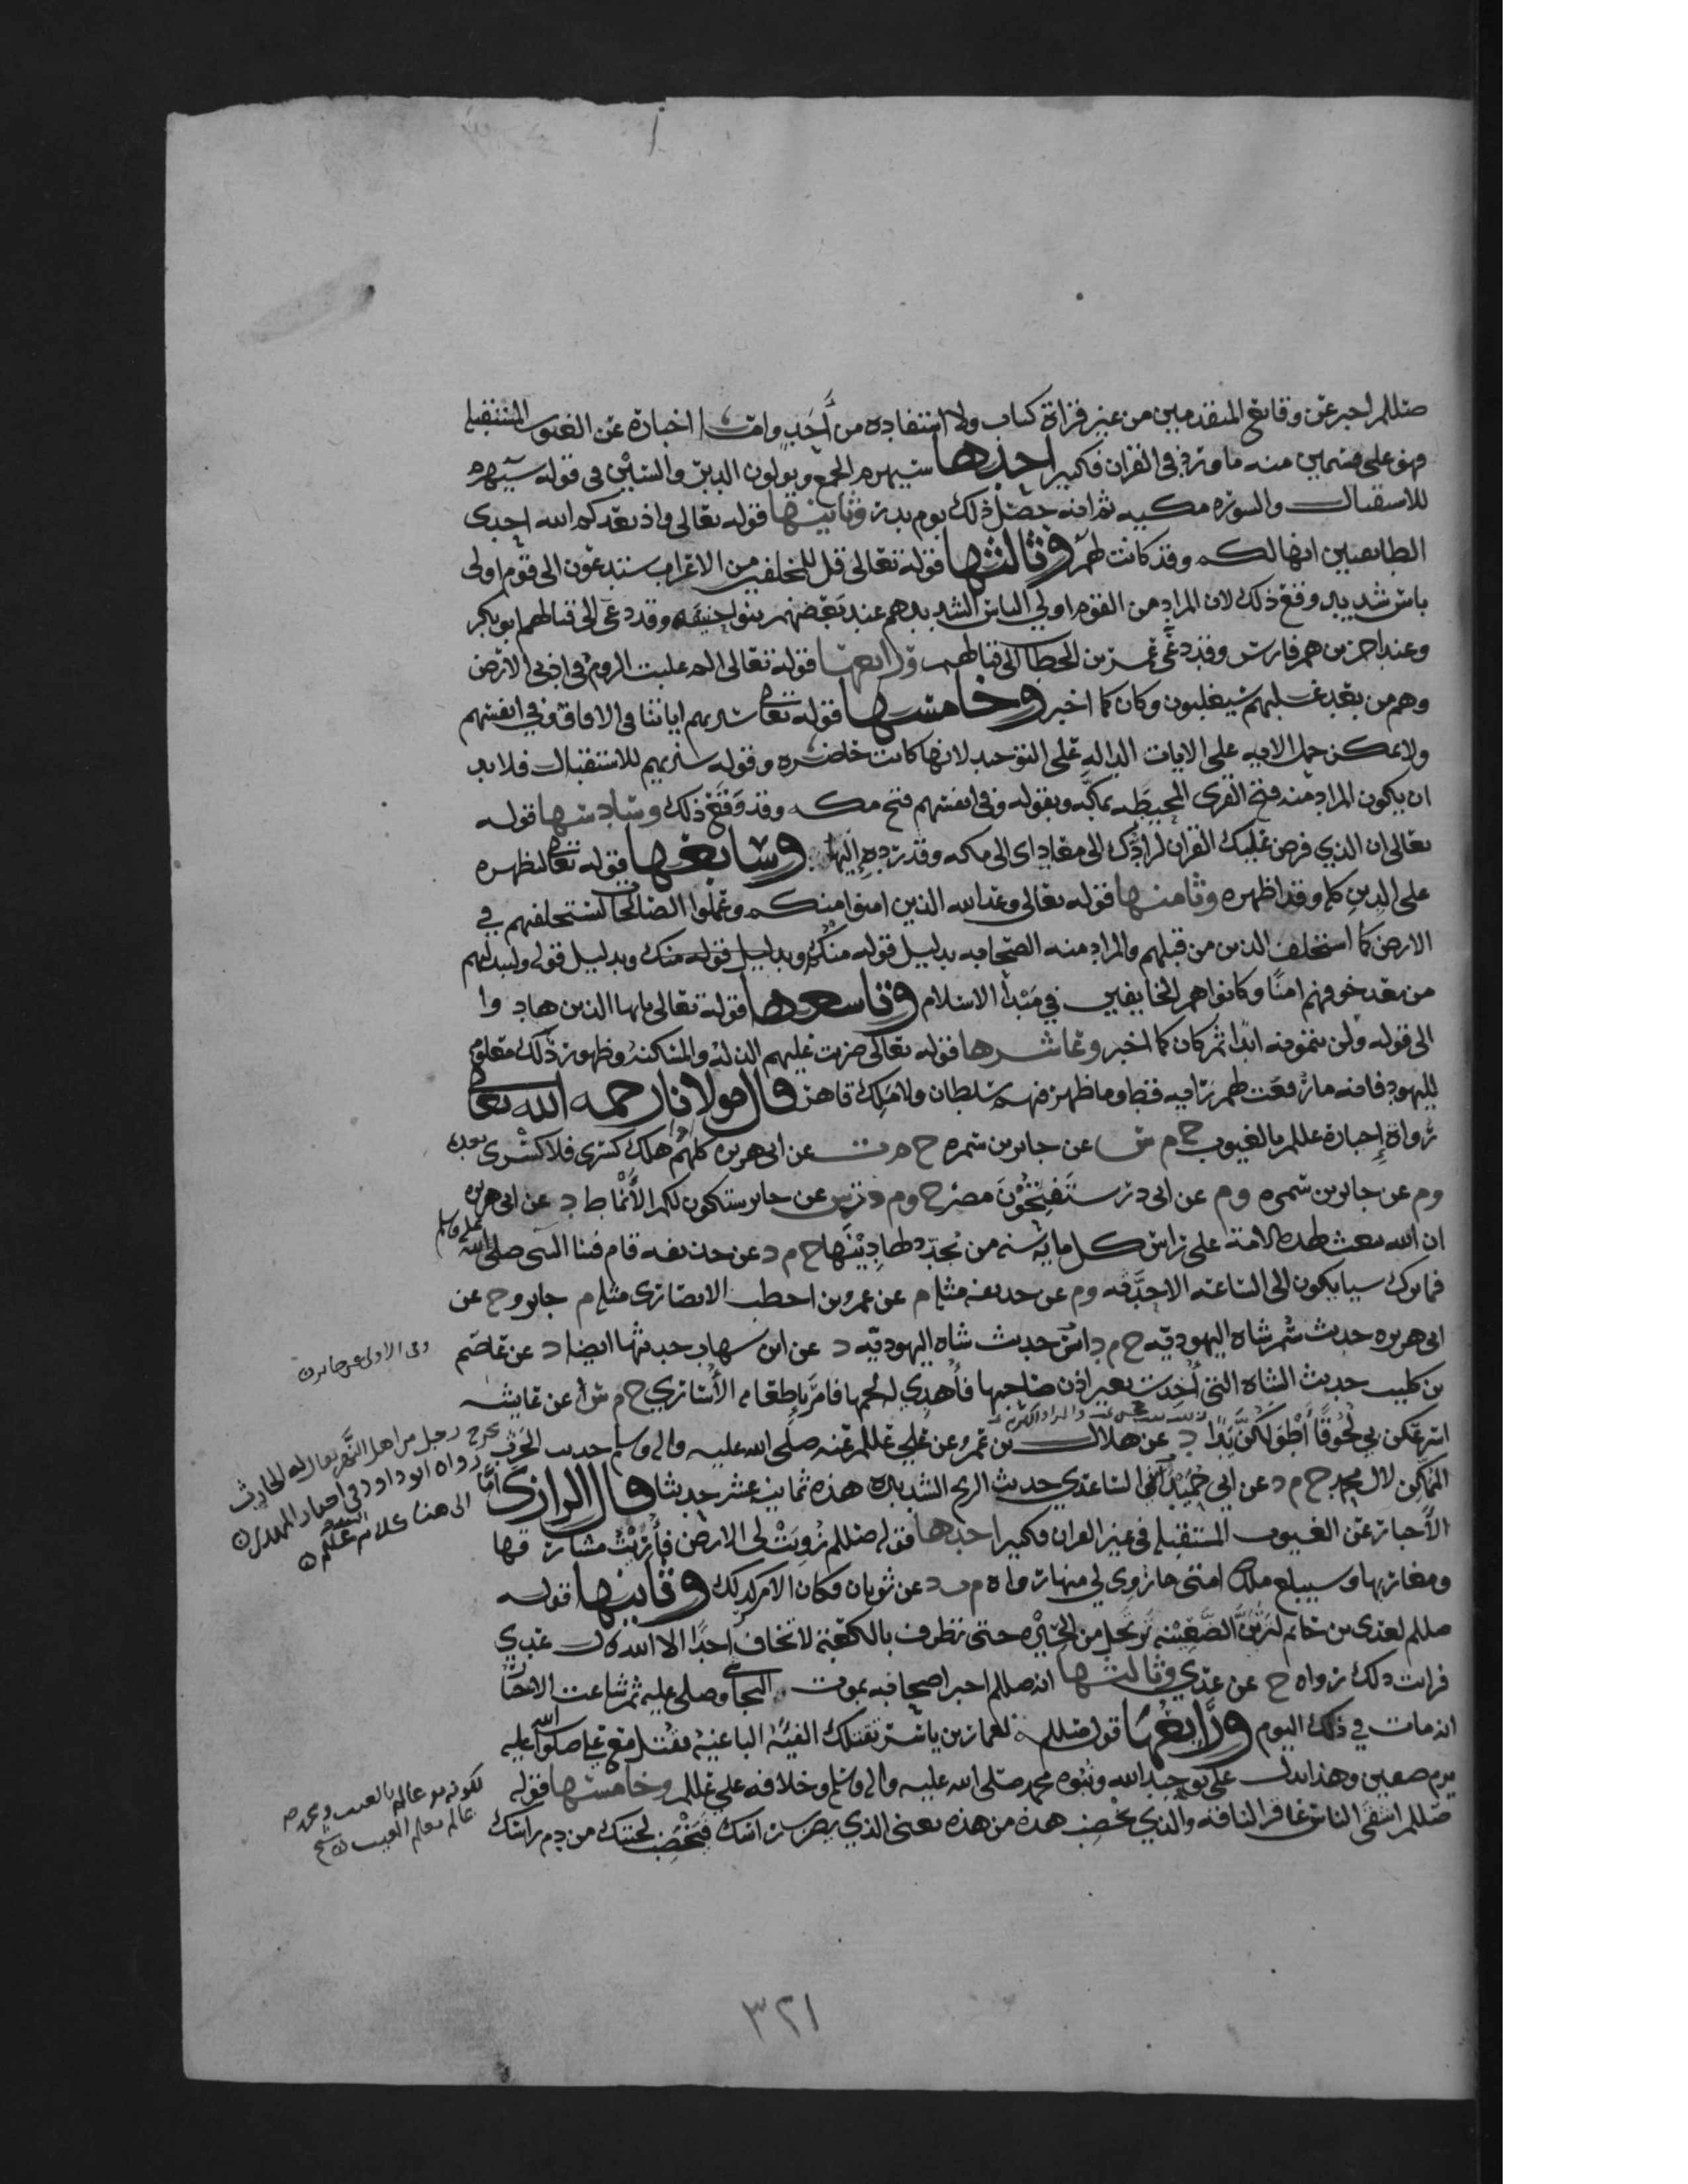 صللم اخبر عن وقائع المتقدمين من غير قراة كتاب ولا استفاده من أحد واما اخباره عن الغيوب المستقبله
فهو على قسمين منه ما ورد في القران فكثير احدها سيهزم الجمع ويولون الدبر والسين في قوله سيهزم
للاستقبال والسوره مكيه ثم انه حصل ذلك يوم بدر وثانيها قوله تعالى واذ يعدكم الله احدى
الطايفتين انها لكم وقد كانت لهم وثالثها قوله تعالى قل للمخلفين من الاعراب ستدعون الى قوم اولى
باس شديد وقع ذلك لان المراد من القوم اولي الباس الشديد هم عند بعضهم بنو حنيفه وقد دعى الى قتالهم ابو بكر
وعند اخرين هم فارس وقد دعى عمر بن الخطاب الى قتالهم ورابعها قوله تعالى الم غلبت الروم في ادنى الارض
وهم من بعد غلبهم سيغلبون وكان كما اخبر وخامسها قوله تعالى سنريهم اياتنا في الافاق وفي انفسهم
ولا يمكن حمل الايه على الايات الداله على التوحيد لانها كانت حاضره وقوله سنريهم للاستقبال فلا بد
ان يكون المراد منه فتح القرى المحيطه بمكه وبقوله وفي انفسهم فتح مكه وقد وقع ذلك وسادسها قوله
تعالى ان الذي فرض عليك القران لرادك الى معاد اى الى مكه وقد رده إليها وسابعها قوله تعالى ليظهره
على الدين كله وقد اظهره وثامنها قوله تعالى وعد الله الذين امنوا منكم وعملوا الصالحات ليستخلفنهم في
الارض كما استخلف الذين من قبلهم والمراد منه الصحابه بدليل قوله منكم وبدليل قوله منكم وبدليل قوله وليبدلنهم
من بعد خوفهم امنًا وكانوا هم الخايفين في مبدأ الاسلام وتاسعها قوله تعالى يايها الذين هادوا
الى قوله ولن يتمنوه ابدًا ثم كان كما اخبر وعاشرها قوله تعالى ضربت عليهم الذله والمسكنه وظهور ذلك معلوم
لليهود فانه ما رفعت لهم رايه قط وما ظهر فيهم سلطان ولا ملك قاهر قال مولانا رحمه الله تعالى
رواة إخباره عللم بالغيوب خ م عن جابر بن سمره خ م ت عن ابى هريره كلهم هلك كسرى فلا كسرى بعده
وم عن جابر بن سمره وم عن ابى ذر ستفتحون مصر خ وم د ت س عن جابر ستكون لكم الأنماط د عن ابى هريره
ان الله يبعث لهذه الامة على راس كل مايه سنه من يجدد لها دينها خ م د عن حذيفه قام فينا النبى صلى الله عليه واله وسلم
فما ترك شيا يكون الى الساعه الا حدثه وم عن حذيفه مثله م عن عمرو بن اخطب الانصارى مثله م جابر وخ عن
ابى هريره حديث سم شاه اليهوديه خ م د انس حديث شاه اليهوديه د عن ابن شهاب حديثها ايضا د عن عاصم
بن كليب حديث الشاة التي أخذت بغير اذن صاحبها فأهدي له لحمها فامر بإطعامه الأسارى خ م س عن عايشه
اسرعكن بي لحوقًا أطولكن يدًا د عن هلال بن عمرو عن علي عللم عنه صلى الله عليه واله وسلم حديث الحرث
الممكن لال محمد خ م د عن ابي حميد الساعدي حديث الريح الشديده هذه ثمانيه عشر حديثا قال الرازى أما
الأخبار عن الغيوب المستقبله في غير القران فكثير احدها قوله صللم زويت لى الارض فأريت مشارقها
ومغاربها وسيبلغ ملك امتى ما زوي لي منها رواه م ت د عن ثوبان فكان الامر كذلك وثانيها قوله
صللم لعدى بن حاتم لترين الضعينه ترتحل من الحيره حتى تطوف بالكعبة لا تخاف احدًا الا الله قال عدي
فرايت ذلك رواه خ عن عدي وثالثها انه صللم اخبر اصحابه بموت النجاشي وصلى عليه ثم شاعت الاخبار
انه مات في ذلك اليوم ورابعها قوله صللم لعمار بن ياسر تقتلك الفيه الباغيه فقتل مع علي صلوات الله عليه
يوم صفين وهذا يدل على توحيد الله ونبوه محمد صلى الله عليه واله وسلم وخلافه علي عللم وخامسها قوله
صللم اشقى الناس عاقر الناقه والذي يخضب هذه من هذه يعنى الذي يضرب راسك فيخضب لحيتك من دم راسك
وفى الاولى عن جابر
يخرج رجل من اهل النهر يقال له الحارث
رواه ابو داود فى اخبار المهدى
الى هنا كلام عللم
لكونه هو عالم بالغيب ومحمد
عالم بعلم الغيب
٣٢١